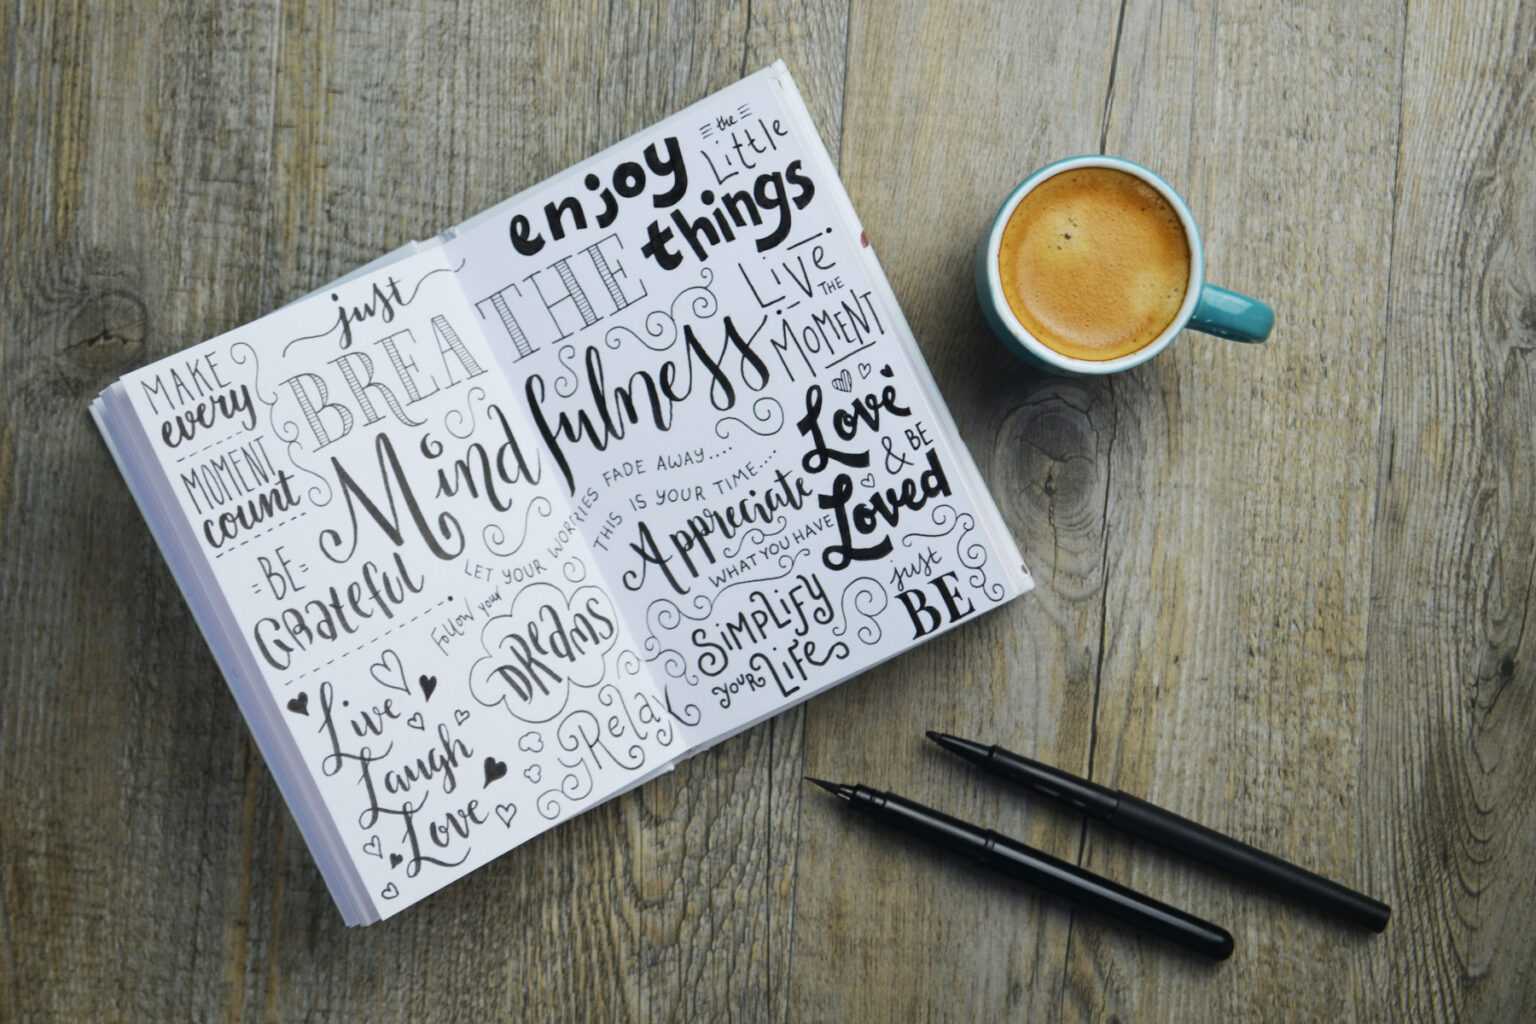 MAKE
every
MOMENT
count
BE
Grateful
Live
Laugh
Love
just
BREATHE
Mindfulness
LET YOUR WORRIES FADE AWAY....
THIS IS YOUR TIME....
Follow your
DReams
Relax
enjoy
the
Little
things
LIVe
THE
MOMENT
Love
& BE
Loved
Appreciate
WHAT YOU HAVE
SiMPLiFY
YOUR LiFe
just
BE